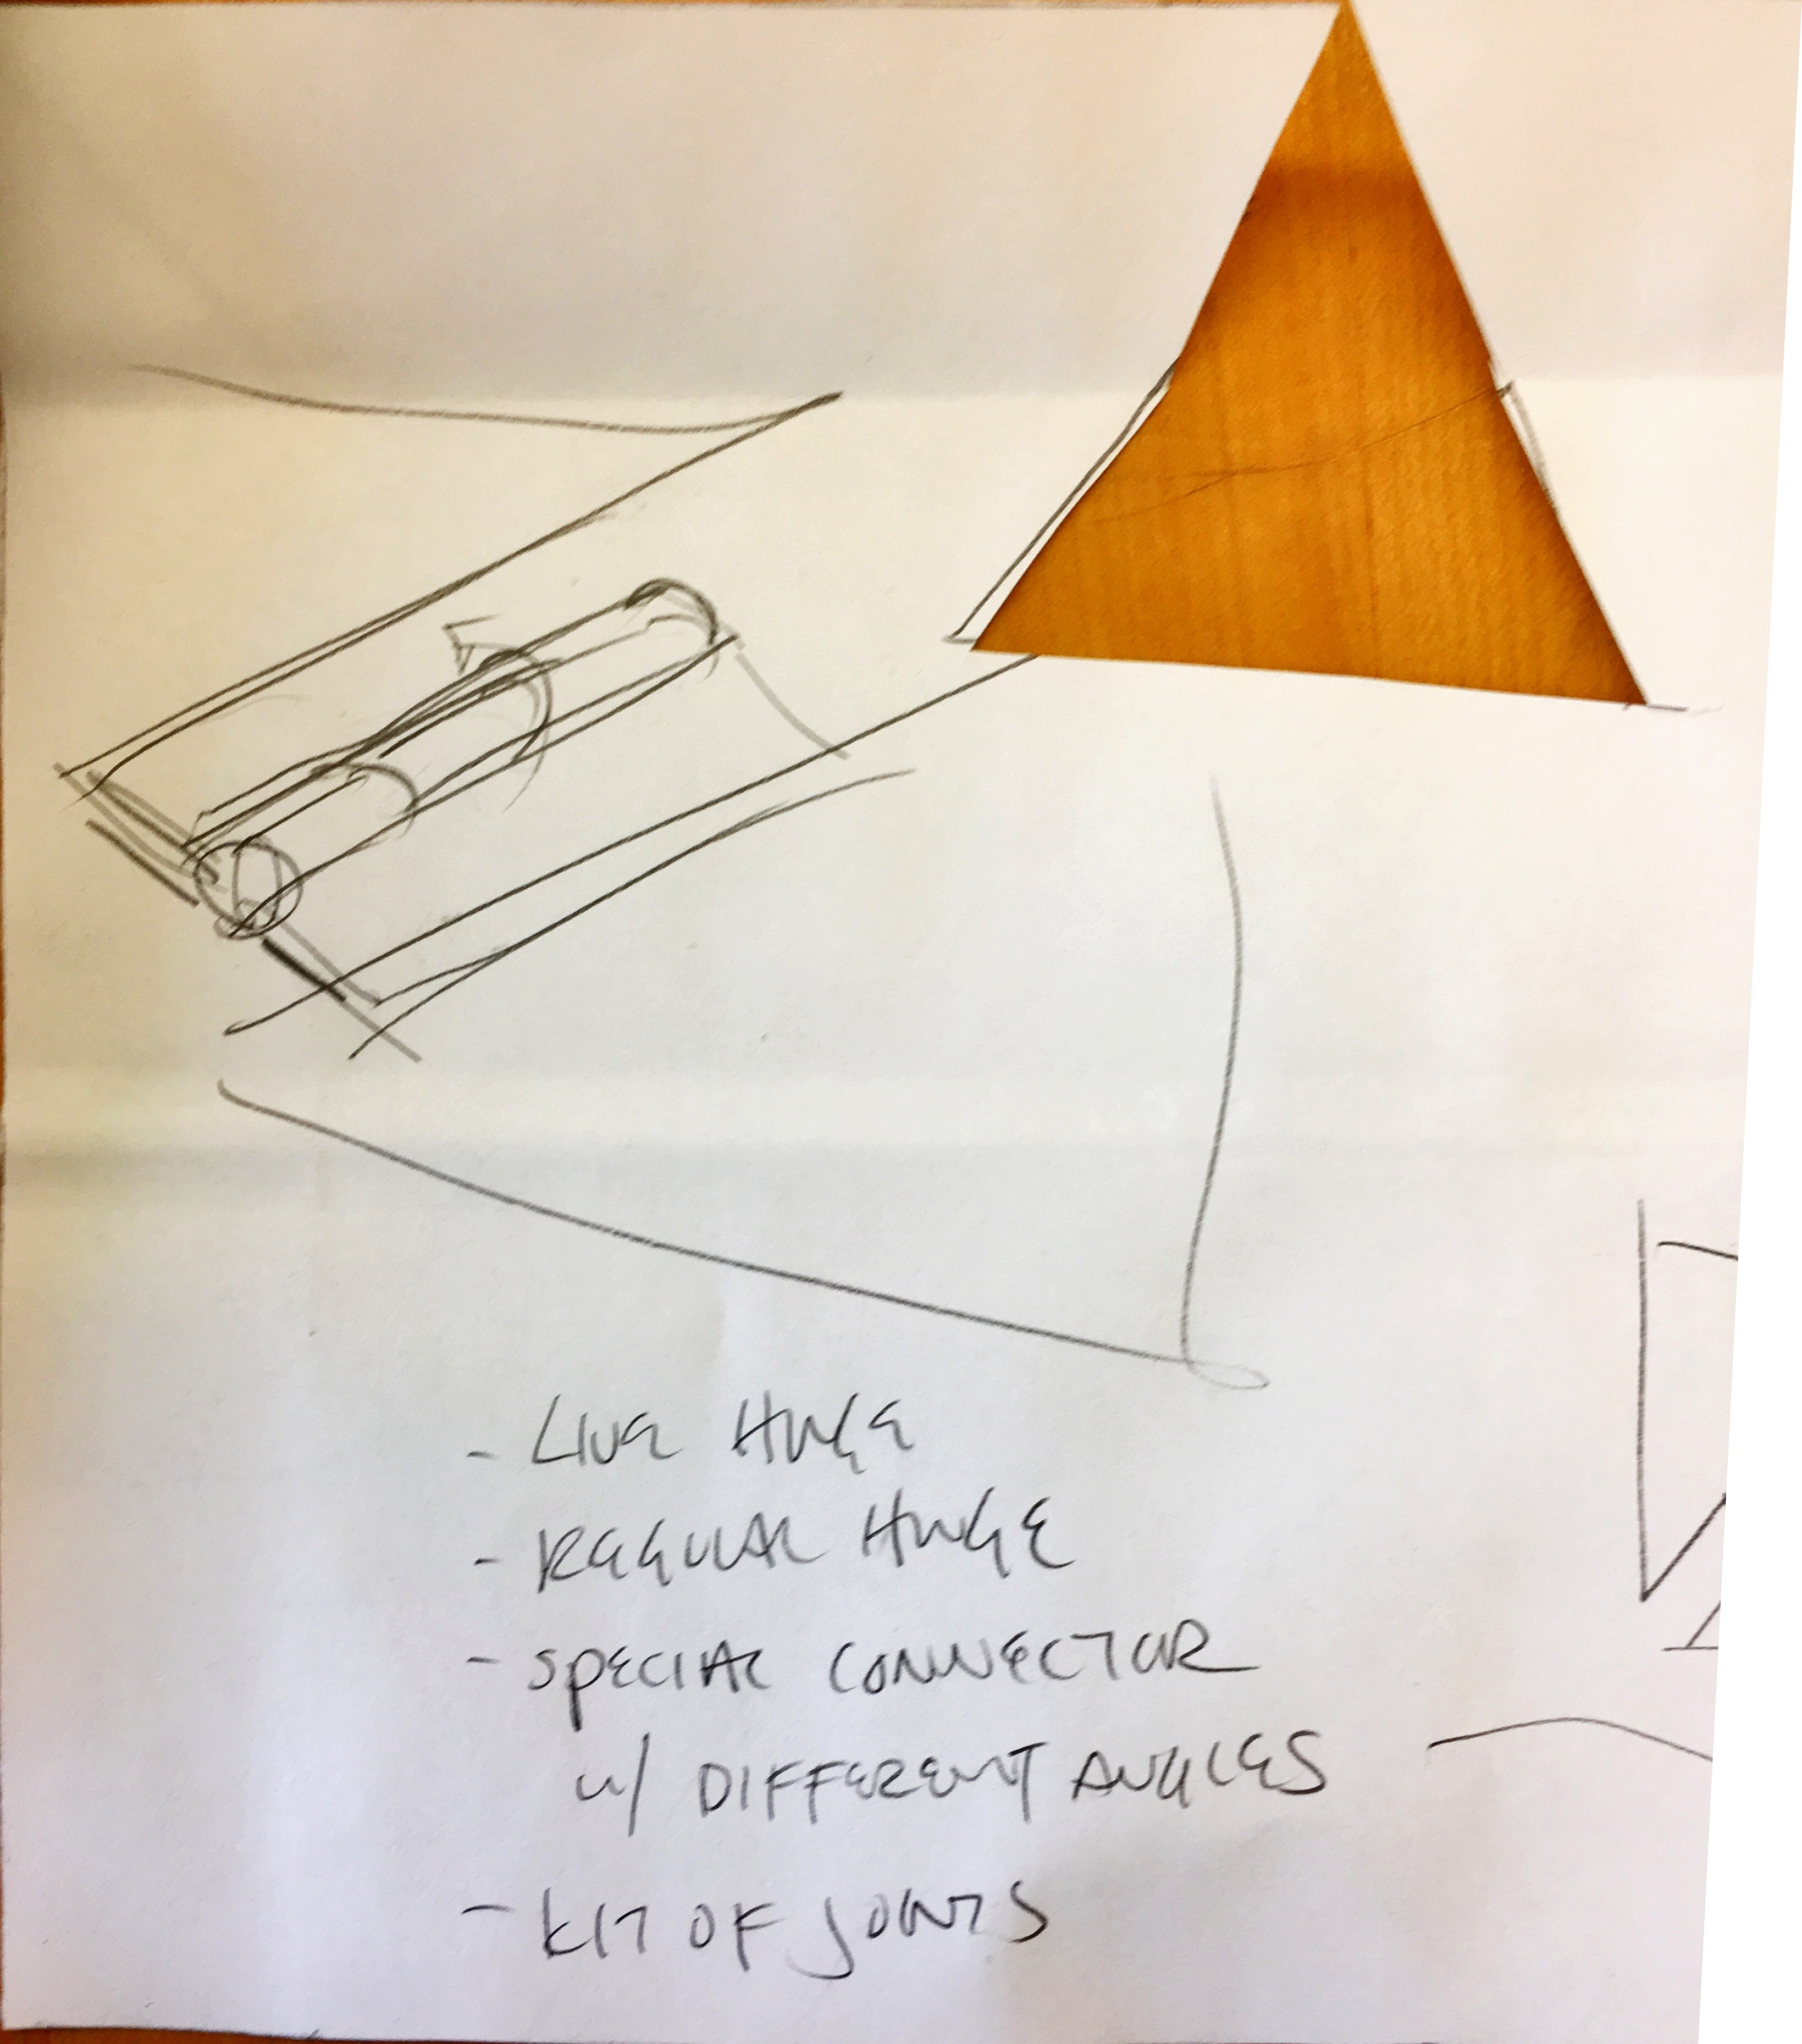 - LIVE HINGE
- REGULAR HINGE
- SPECIAL CONNECTOR
w/ DIFFERENT ANGLES
- KIT OF JOINTS